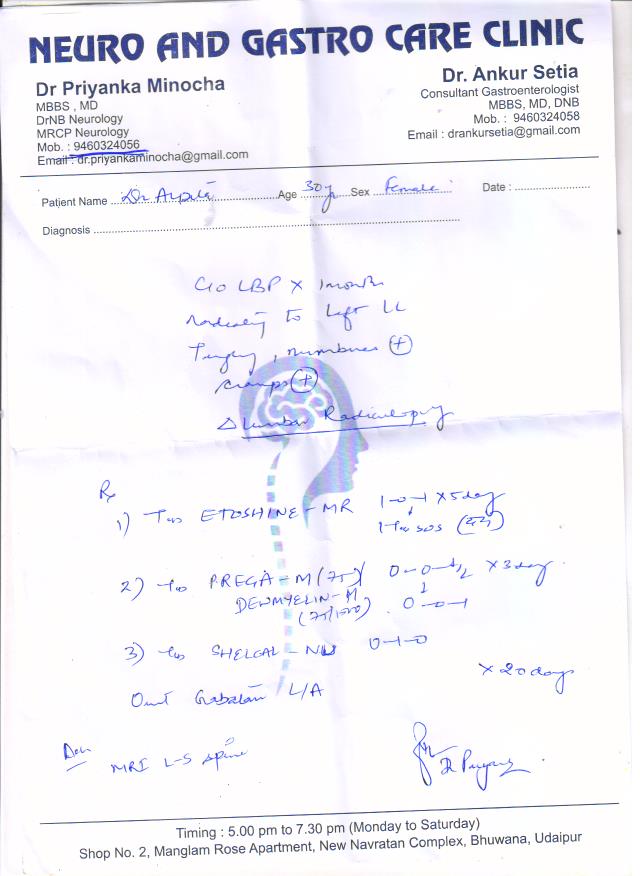 NEURO AND GASTRO CARE CLINIC
Dr Priyanka Minocha
MBBS , MD
DrNB Neurology
MRCP Neurology
Mob. : 9460324056
Email : dr.priyankaminocha@gmail.com
Dr. Ankur Setia
Consultant Gastroenterologist
MBBS, MD, DNB
Mob. : 9460324058
Email : drankursetia@gmail.com
Patient Name Dr Arpita Age 30 yr Sex Female Date :
Diagnosis
C/o LBP x 1 month
radiating to Left LL
Tingling, numbness +
cramps +
Δ Lumbar Radiculopathy
Rx
1) Tab ETOSHINE-MR 1-0-1 x 5 day
↓
1 Tab SOS
2) Tab PREGA-M (75) 0-0-1/2 x 3 day
↓
DENMYELIN-M 0-0-1
(75/1500)
3) Tab SHELCAL 0-1-0
x 20 days
Oint L/A
Adv
MRI L-S Spine
Dr Priyanka
Timing : 5.00 pm to 7.30 pm (Monday to Saturday)
Shop No. 2, Manglam Rose Apartment, New Navratan Complex, Bhuwana, Udaipur